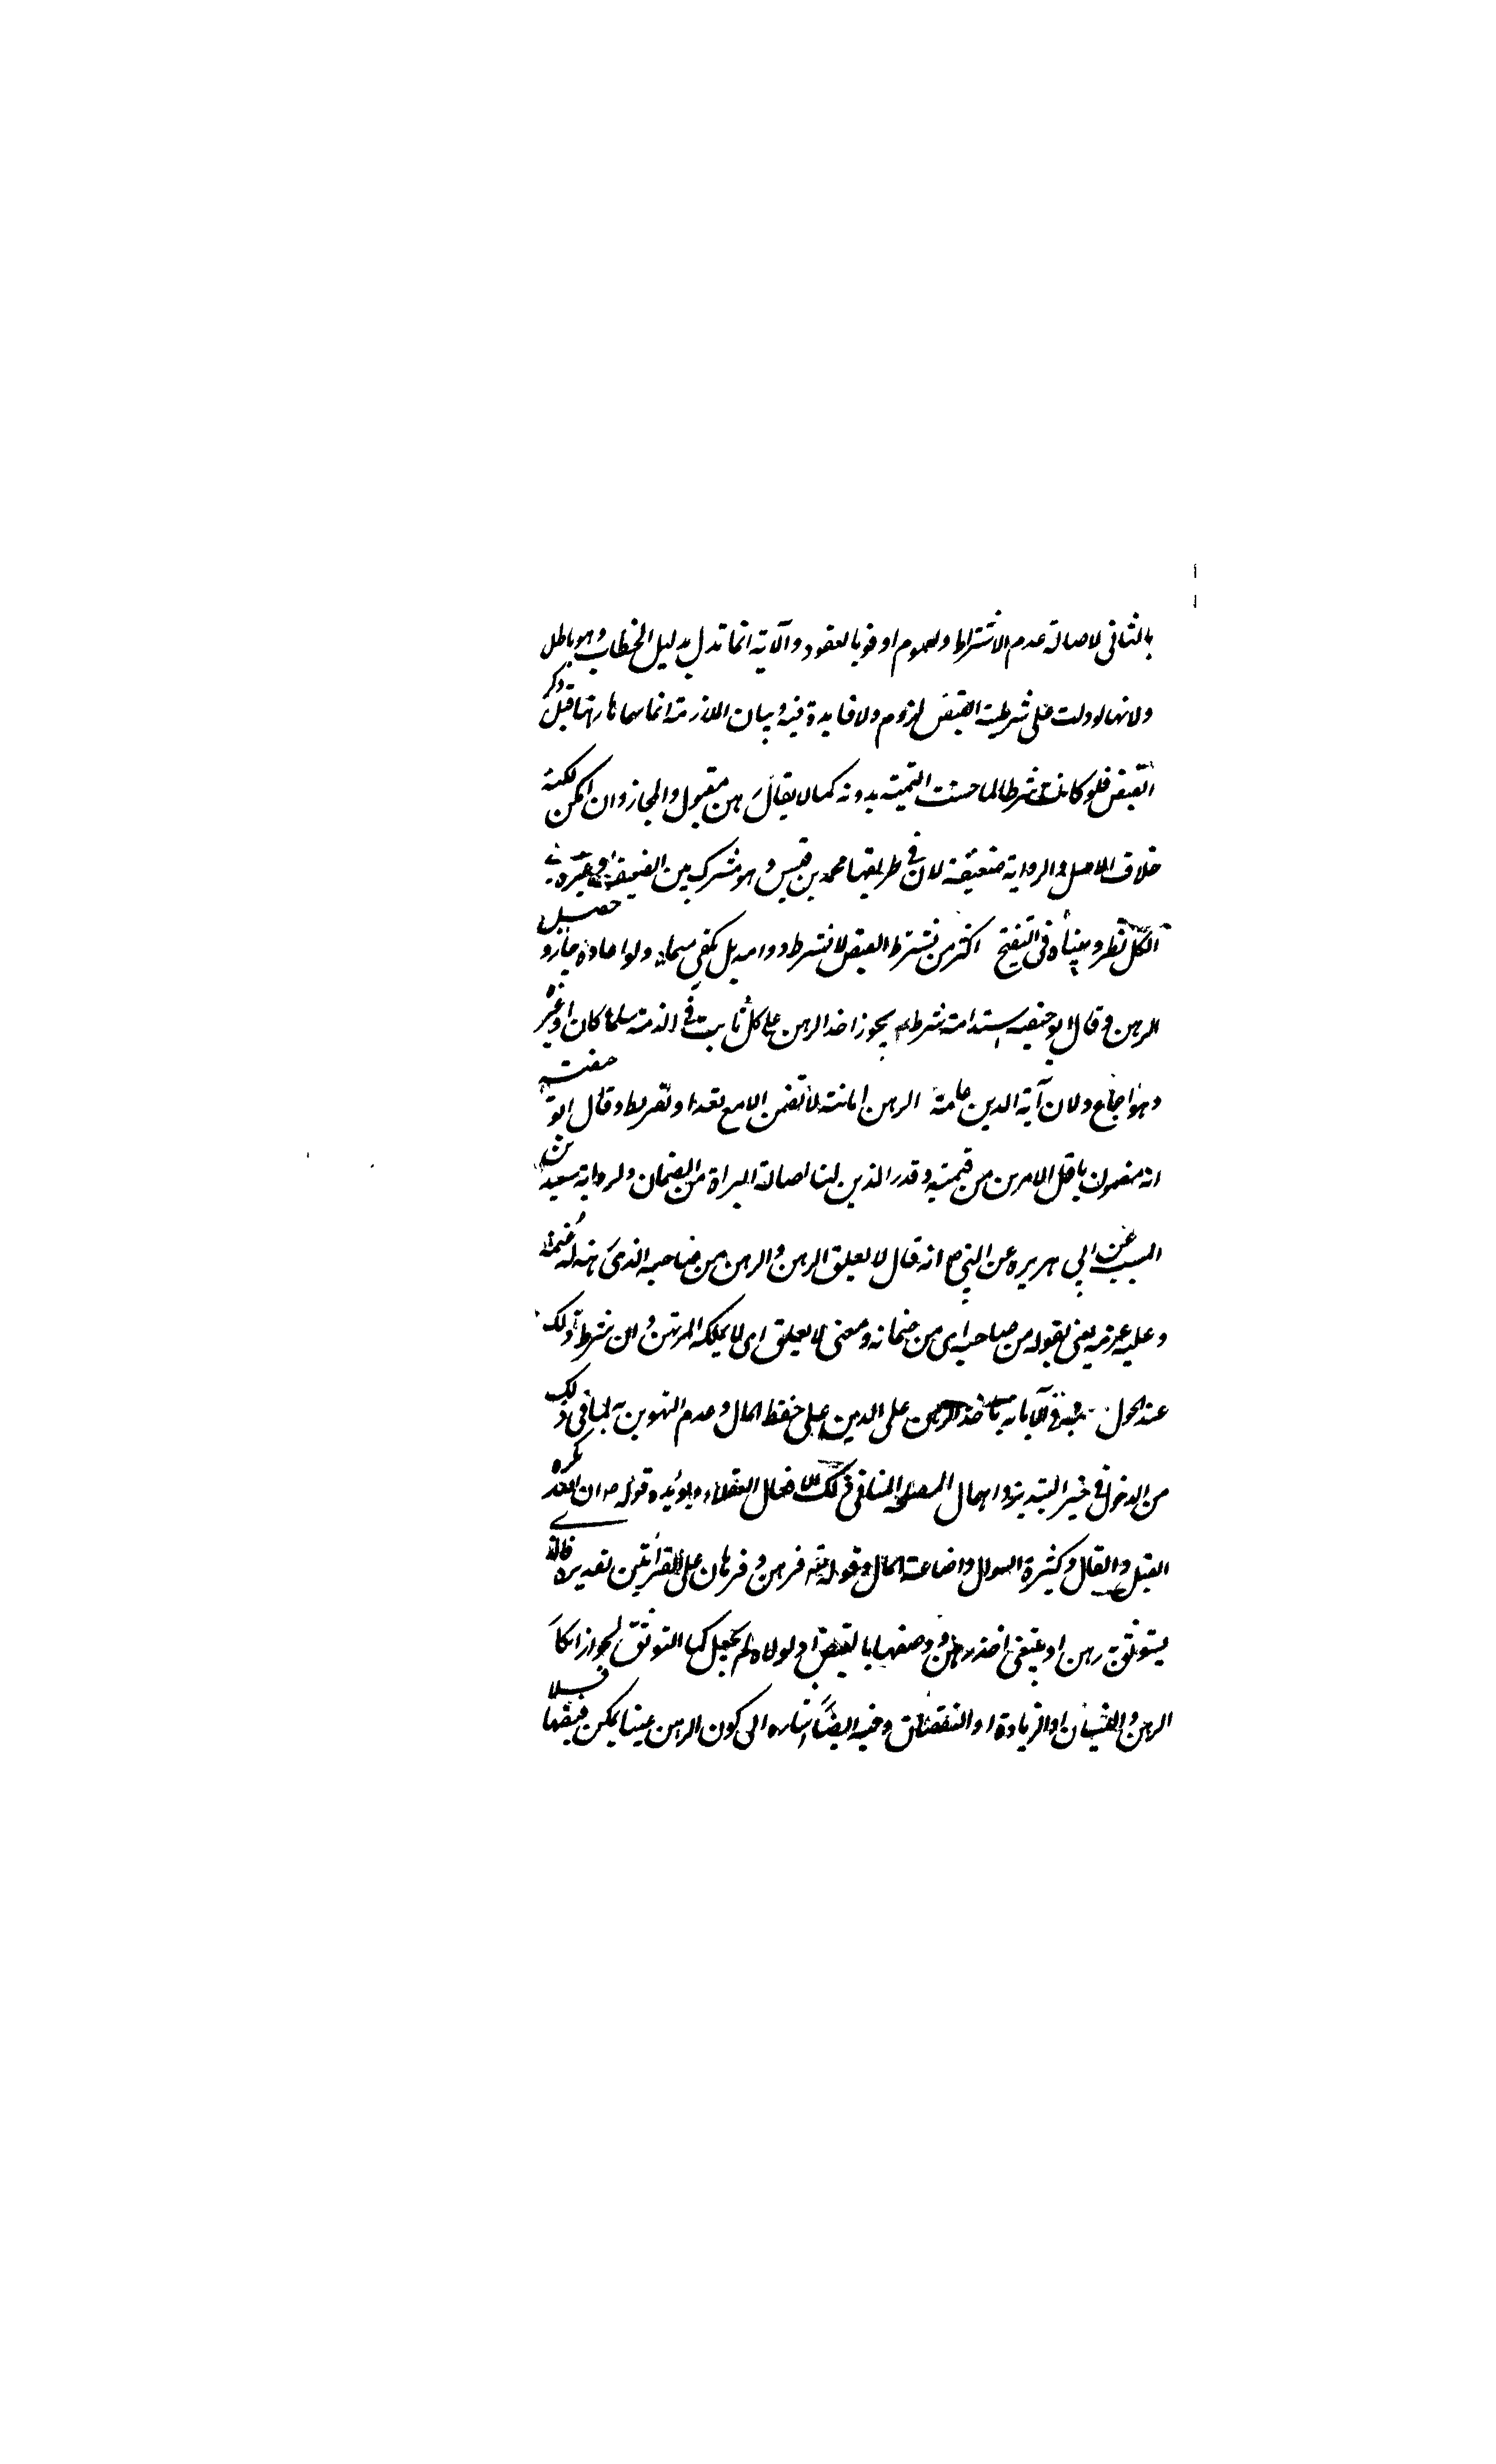 بالثاني لاصالة عدم الاشتراط ولعموم اوفوا بالعقود والآية انما تدل بدليل الخطاب وهو باطل
ولانها لو دلت على شرطية القبض لزوم ولا فايدة فيه وبيان الملازمة انما سماها رهنا قبل ذكر
القبض فلو كانت شرطا لما حسنت التسمية بدونه كما لا يقال رهن مقبول والمجاز وان امكن لكنه
خلاف الاصل والرواية ضعيفة لان في طريقها محمد بن قيس وهو مشترك بين الضعيف وغيره وفي
الكل نظر وبيناه في التنقيح اكثر من يشترط القبض لا يشترط دوامه بل يكفي مسماه ولو اعاده جاز و
الرهن وقال ابو حنيفه استدامته شرط يجوز اخذ الرهن على كل ثابت في الذمة سلما كان او غيره
وهو اجماع ولان آية الدين عامة الرهن امانة لا تضمن الا مع تعد او تفريط وقال ابو حنيفة
انه مضمون باقل الامرين من قيمته وقدر الدين لنا اصالة البراة من الضمان ولرواية سعيد بن
المسيب عن ابي هريره عن النبي ص انه قال لا يعلق الرهن والرهن من صاحبه الذي رهنه له غنمه
وعليه غرمه يعني بقوله من صاحبه اي من ضمانه ومعنى لا يعلق اي لا يملكه المرتهن وان شرط ذلك
عند الحول الرهن على الدين على حفظ المال وعدم التهوين به لما في ذلك
من الدخول في اهمال المصلحة المنافي ذلك لافعال العقلاء ويؤيده قوله ص ان الله يكره
القيل والقال وكثرة السوال واضاعة المال وقوله تعه فرهن وفرهان على القرائتين تقديره فالذي
يستوثق به رهن او ينبغي اخذ رهن ووصفها بالقبض اذ لولاه لم يحصل كمال التوثق لجواز انكار
الرهن والنسيان او الزيادة او النقصان وفيه ايضا اشاره الى كون الرهن عينا يمكن قبضها فلا